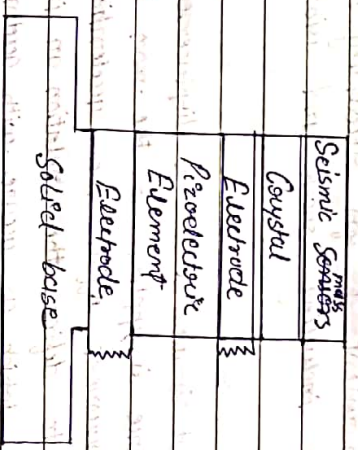 Seismic mass
Crystal
Electrode
Piezoelectric
Element
Electrode
Solid base